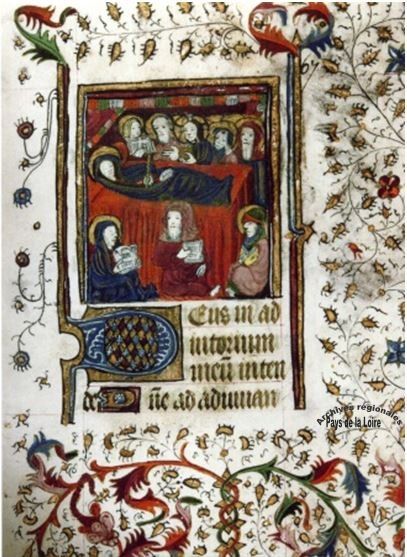 Deus in ad
iutorium
meū inten
de Dn̄e ad adiuuan
Archives régionales
Pays de la Loire